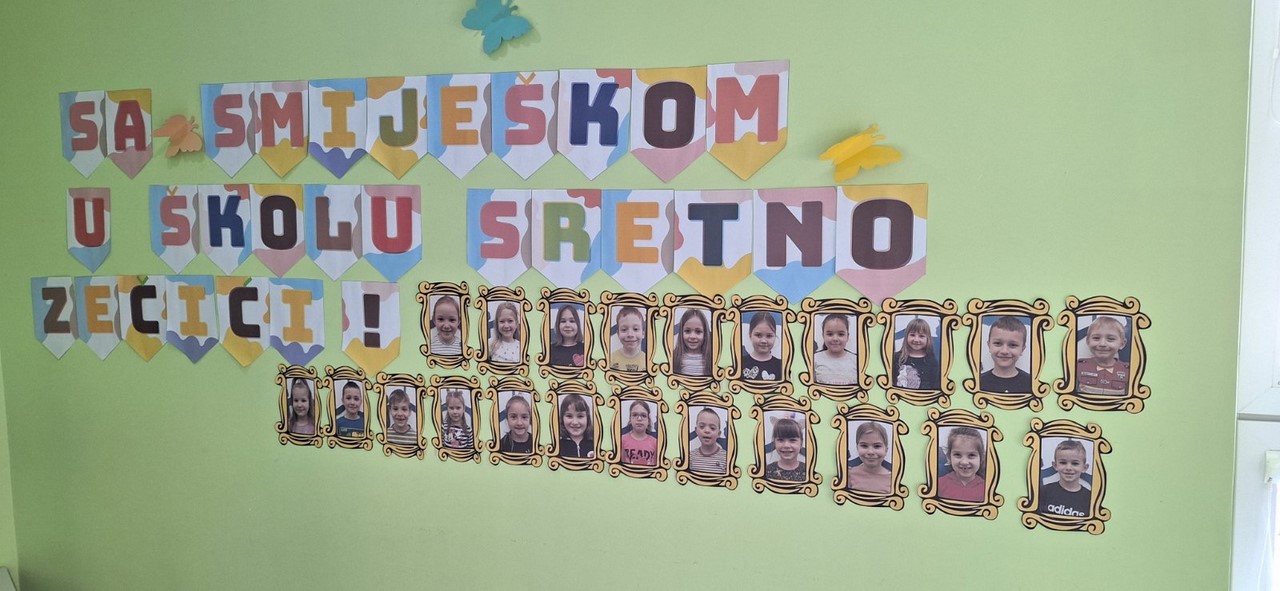 SA SMIJEŠKOM
U ŠKOLU SRETNO
ZEČIĆI !
READY
adidas